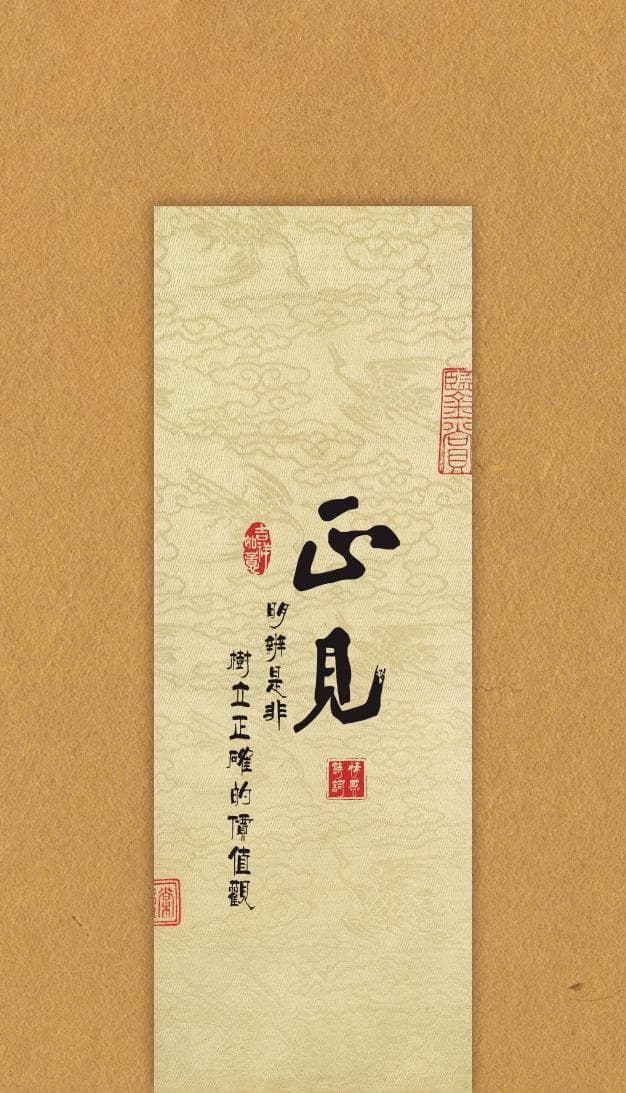 正見
明辨是非
樹立正確的價值觀
吉祥
如意